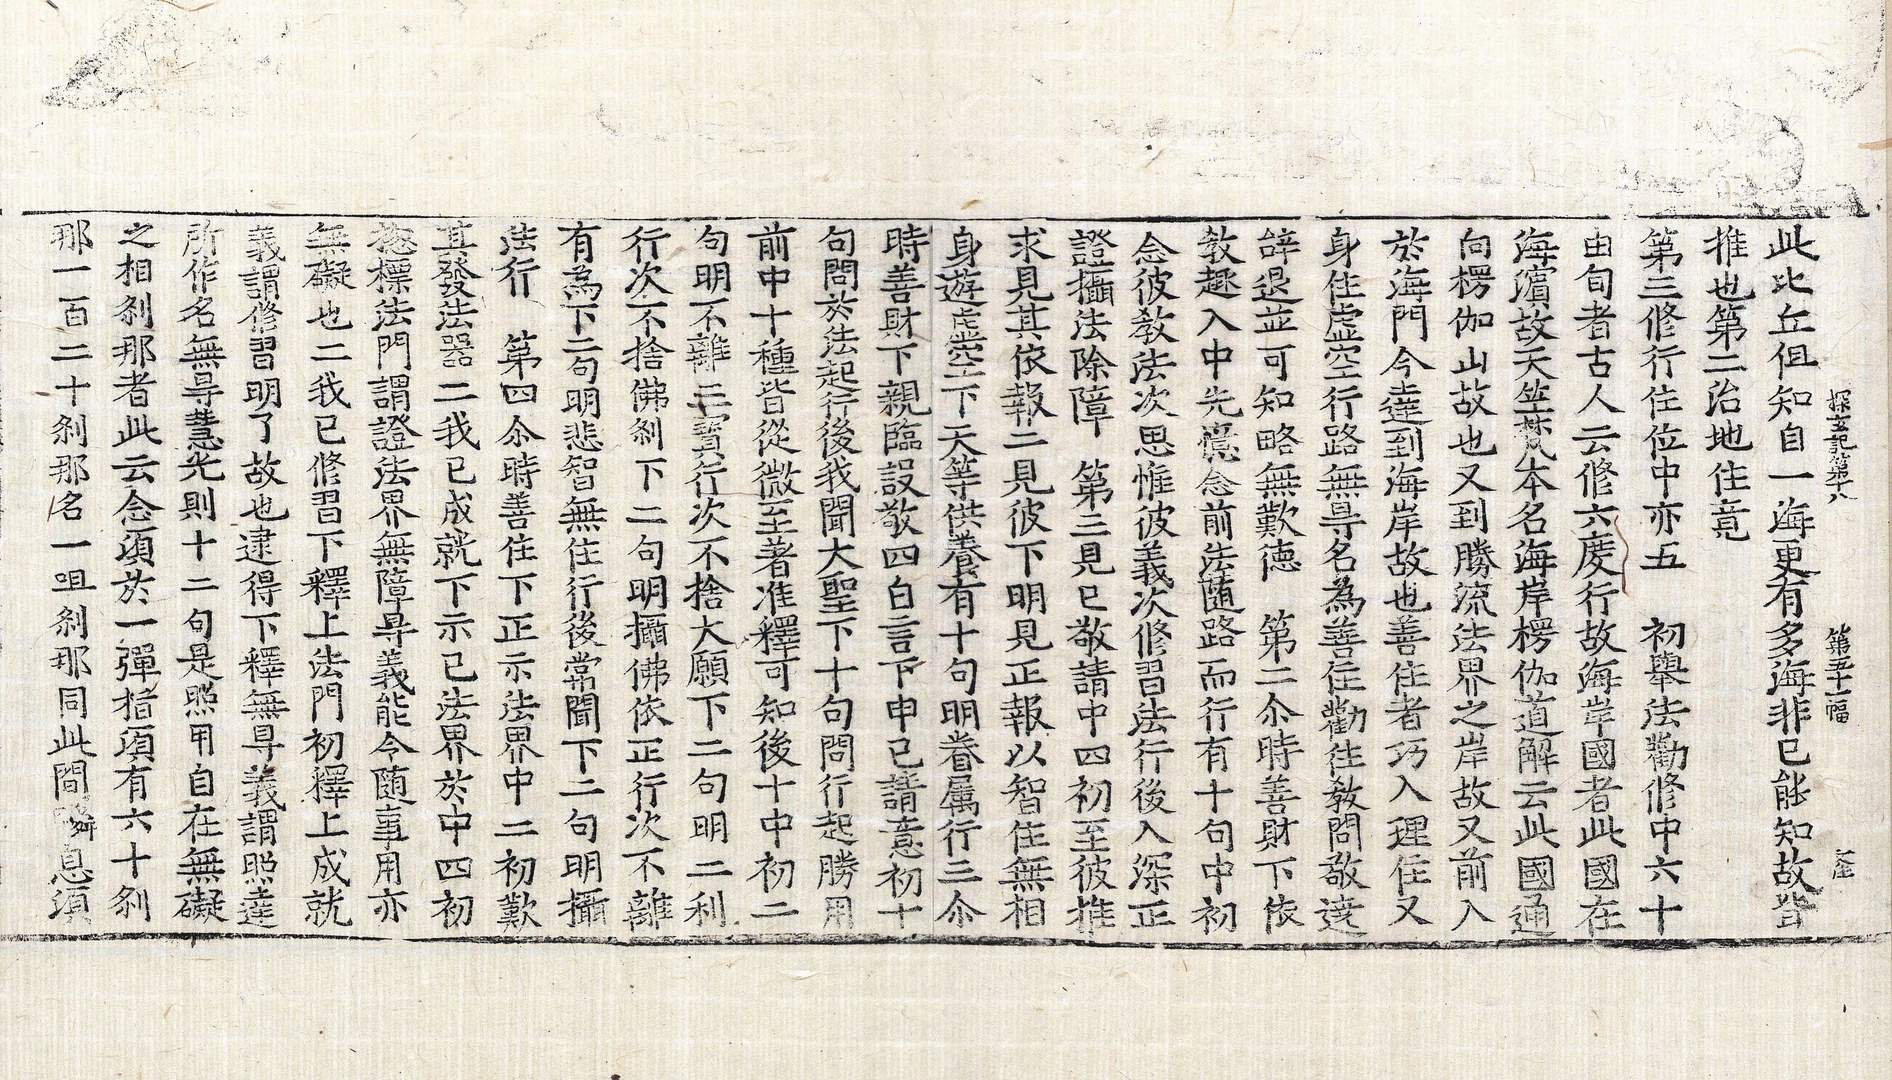 探玄記第十八　第五十一福　崔
此比丘但知自一海更有多海非已能知故皆
推也第二治地住竟
第三修行住位中亦五　初舉法勸修中六十
由旬者古人云修六度行故海岸國者此國在
海濱故天竺梵本名海岸楞伽道解云此國通
向楞伽山故也又到勝流法界之岸故又前入
於海門今達到海岸故也善住者巧入理住又
身住虛空行路無㝵名為善住勸往教問敬遶
辞退並可知略無歎德　第二尒時善財下依
教趣入中先憶念前法随路而行有十句中初
念彼教法次思惟彼義次修習法行後入深正
證攝法除障　第三見已敬請中四初至彼推
求見其依報二見彼下明見正報以智住無相
身遊虛空下天等供養有十句明眷属行三尒
時善財下親臨設敬四白言下申已請意初十
句問於法起行後我聞大聖下十句問行起勝用
前中十種皆從微至著准釋可知後十中初二
句明不離三寶行次不捨大願下二句明二利
行次不捨佛刹下二句明攝佛依正行次不離
有為下二句明悲智無住行後常聞下二句明攝
法行　第四尒時善住下正示法界中二初歎
其發法器二我已成就下示已法界於中四初
捴標法門謂證法界無障㝵義能令随事用亦
無礙也二我已修習下釋上法門初釋上成就
義謂修習明了故也逮得下釋無㝵義謂照達
所作名無㝵慧光則十二句是照用自在無礙
之相刹那者此云念須於一彈指須有六十刹
那一百二十刹那名一呾刹那同此間瞬息須